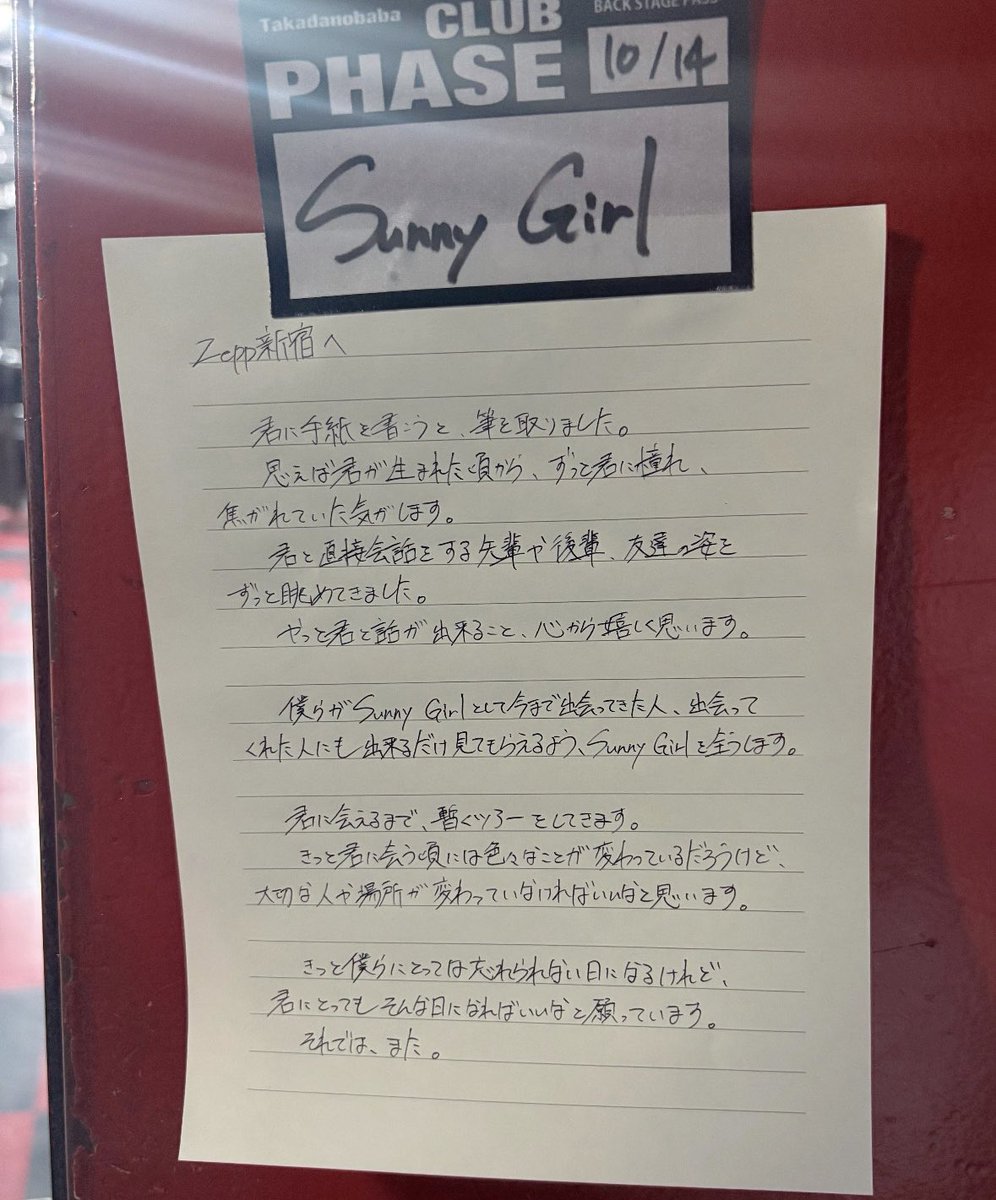 Takadanobaba
CLUB
PHASE
BACK STAGE PASS
10/14
Sunny Girl
Zepp新宿へ
君に手紙を書こうと、筆を取りました。
思えば君が生まれた頃から、ずっと君に憧れ、
焦がれていた気がします。
君と直接会話をする先輩や後輩、友達の姿を
ずっと眺めてきました。
やっと君と話が出来ること、心から嬉しく思います。
僕らがSunny Girlとして今まで出会ってきた人、出会って
くれた人にも出来るだけ見てもらえるよう、Sunny Girlを全うします。
君に会えるまで、暫くツアーをしてきます。
きっと君に会う頃には色々なことが変わっているだろうけど、
大切な人や場所が変わっていなければいいなと思います。
きっと僕らにとっては忘れられない日になるけれど、
君にとってもそんな日になればいいなと願っています。
それでは、また。